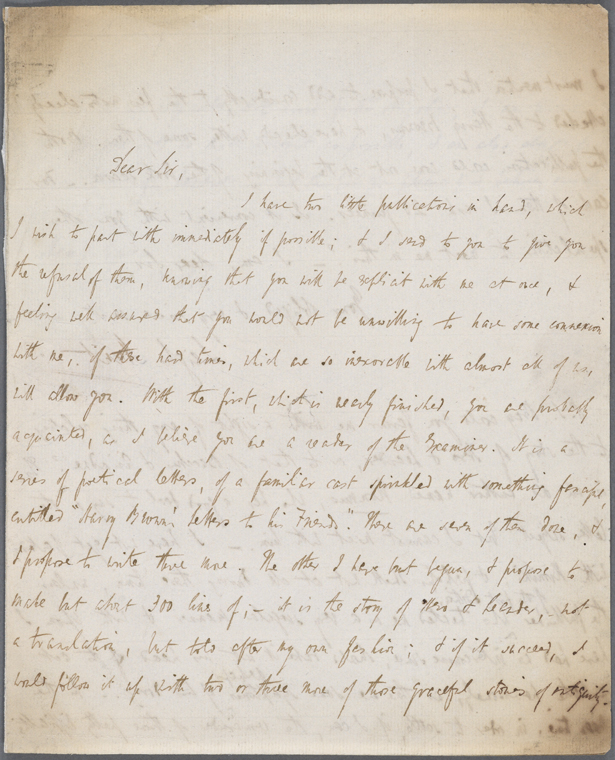 Dear Sir,
I have two little publications in hand, which
I wish to part with immediately if possible; & I send to you to give you
the refusal of them, knowing that you will be explicit with me at once, &
feeling well assured that you would not be unwilling to have some connexion
with me, if these hard times, which are so inexorable with almost all of us,
will allow you. With the first, which is nearly finished, you are probably
acquainted, as I believe you are a reader of the Examiner. It is a
series of poetical letters, of a familiar cast sprinkled with something fanciful,
entitled "Harry Brown's Letters to his Friends." There are seven of them done, &
I propose to write three more. The other I have but begun, & propose to
make but about 300 lines of;– it is the story of Hero & Leander,– not
a translation, but told after my own fashion; & if it succeed, I
would follow it up with two or three more of those graceful stories of antiquity.